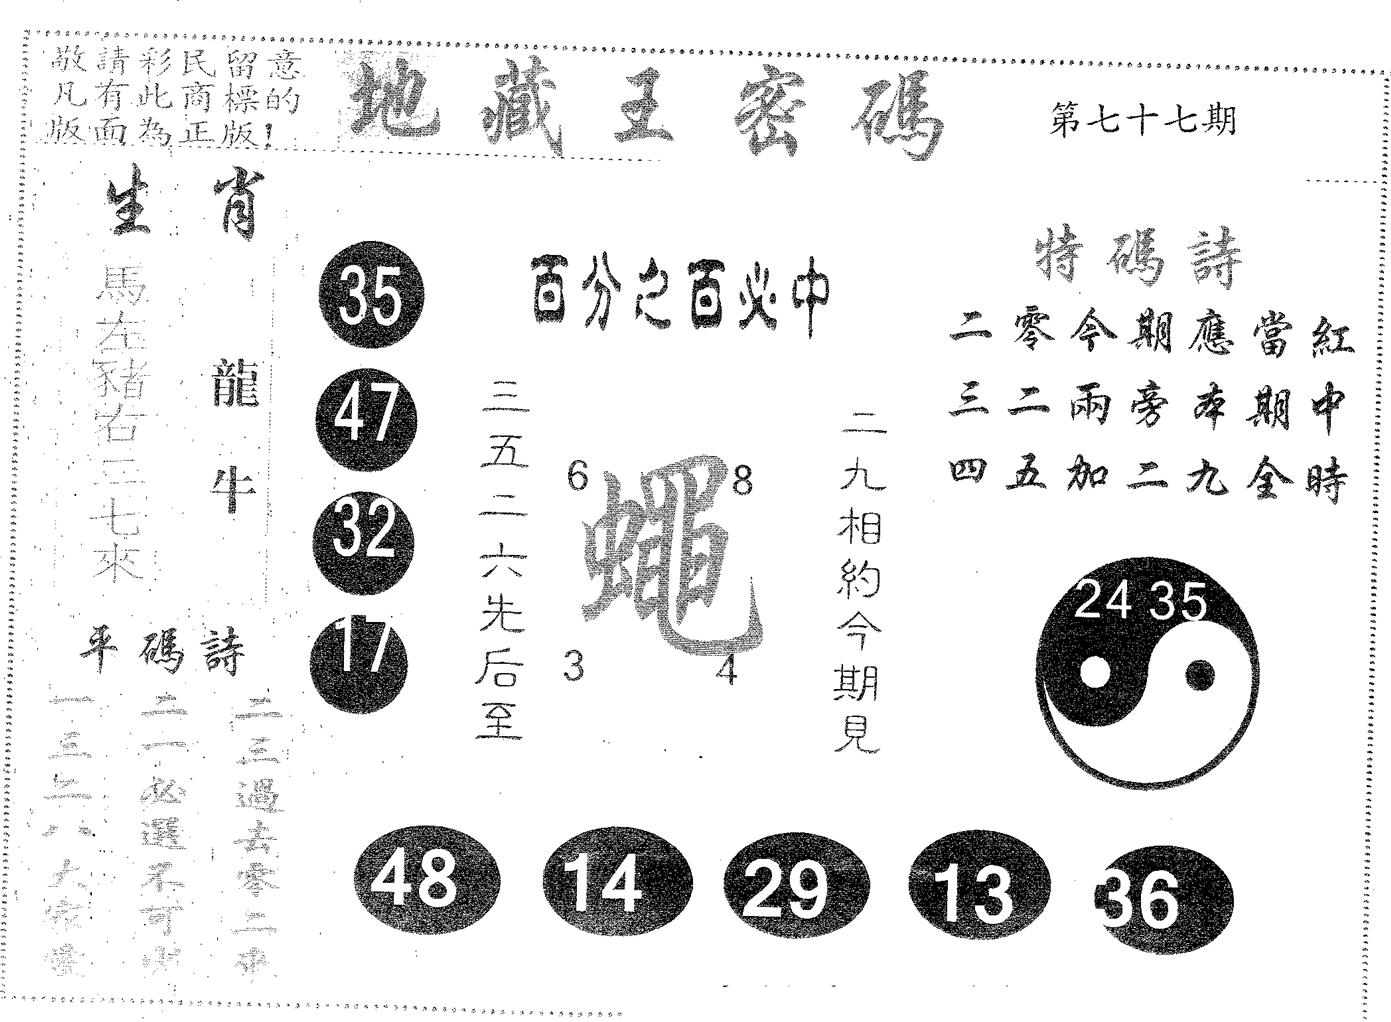 敬請彩民留意
凡有此商標的
版面為正版!
地藏王密碼
第七十七期
生肖
馬左豬右三七來
龍牛
35
47
32
17
百分之百必中
三五二六先后至
6
8
蠅
3
4
二九相約今期見
特碼詩
二零今期應當紅
三二兩旁本期中
四五加二九全時
24 35
平碼詩
二三過去零二來
二一必選不可
一三二八大家
48
14
29
13
36